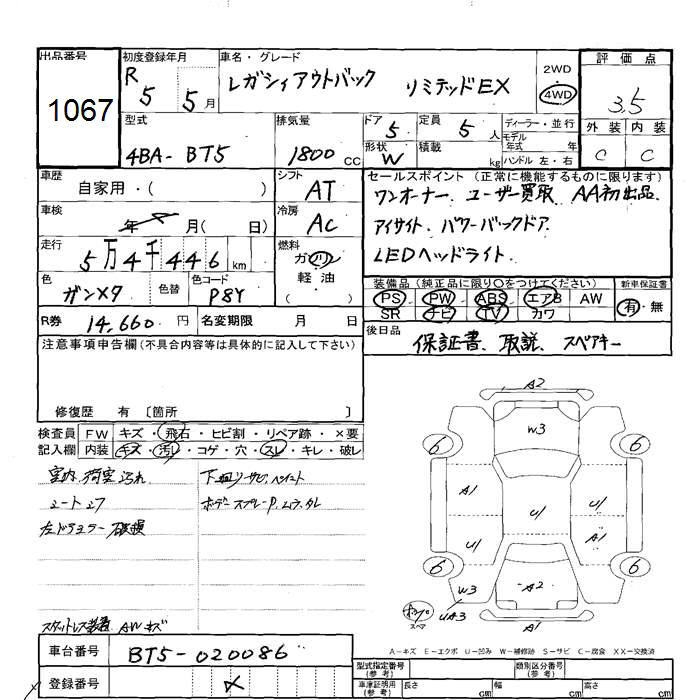 出品番号
1067
初度登録年月
R 5 5月
車名・グレード
レガシィアウトバック リミテッドEX
2WD
4WD
評価点
3.5
外装 内装
C C
型式
4BA-BT5
排気量
1800cc
ドア 5
形状 W
定員 5人
積載 kg
ディーラー・並行
モデル年式 年
ハンドル 左・右
車歴
自家用・( )
シフト
AT
セールスポイント(正常に機能するものに限ります)
ワンオーナー、ユーザー買取、AA初出品、
アイサイト、パワーバックドア、
LEDヘッドライト
車検
年 月( 日)
冷房
AC
走行
5万4千446km
燃料
ガソリン
軽油
( )
色
ガンメタ
色替
色コード
P8Y
装備品(純正品に限り○をつけてください)
PS PW ABS エアB AW
SR ナビ TV カワ
新車保証書
有・無
R券 14,660円
名変期限 月 日
後日品
保証書、取説、スペアキー
注意事項申告欄(不具合内容等は具体的に記入して下さい)
修復歴 有〔箇所 〕
検査員記入欄
FW キズ・飛石・ヒビ割・リペア跡・×要
内装 キズ・汚レ・コゲ・穴・スレ・キレ・破レ
室内、荷室汚れ
シートスレ
左ドアミラー破損
スタットレス装着 AWキズ
下廻りサビ、ペイント
ボデースプレーP、ムラ、タレ
A2
W3
6 6
A1 U1 U1
U1 A1
6 6
W3 A2
UA3 A1
スペア
A-キズ E-エクボ U-凹み W-補修跡 S-サビ C-腐食 XX-交換済
車台番号
BT5-020086
登録番号
型式指定番号(参考)
類別区分番号(参考)
車庫証明用(参考)
長さ cm 幅 cm 高さ cm